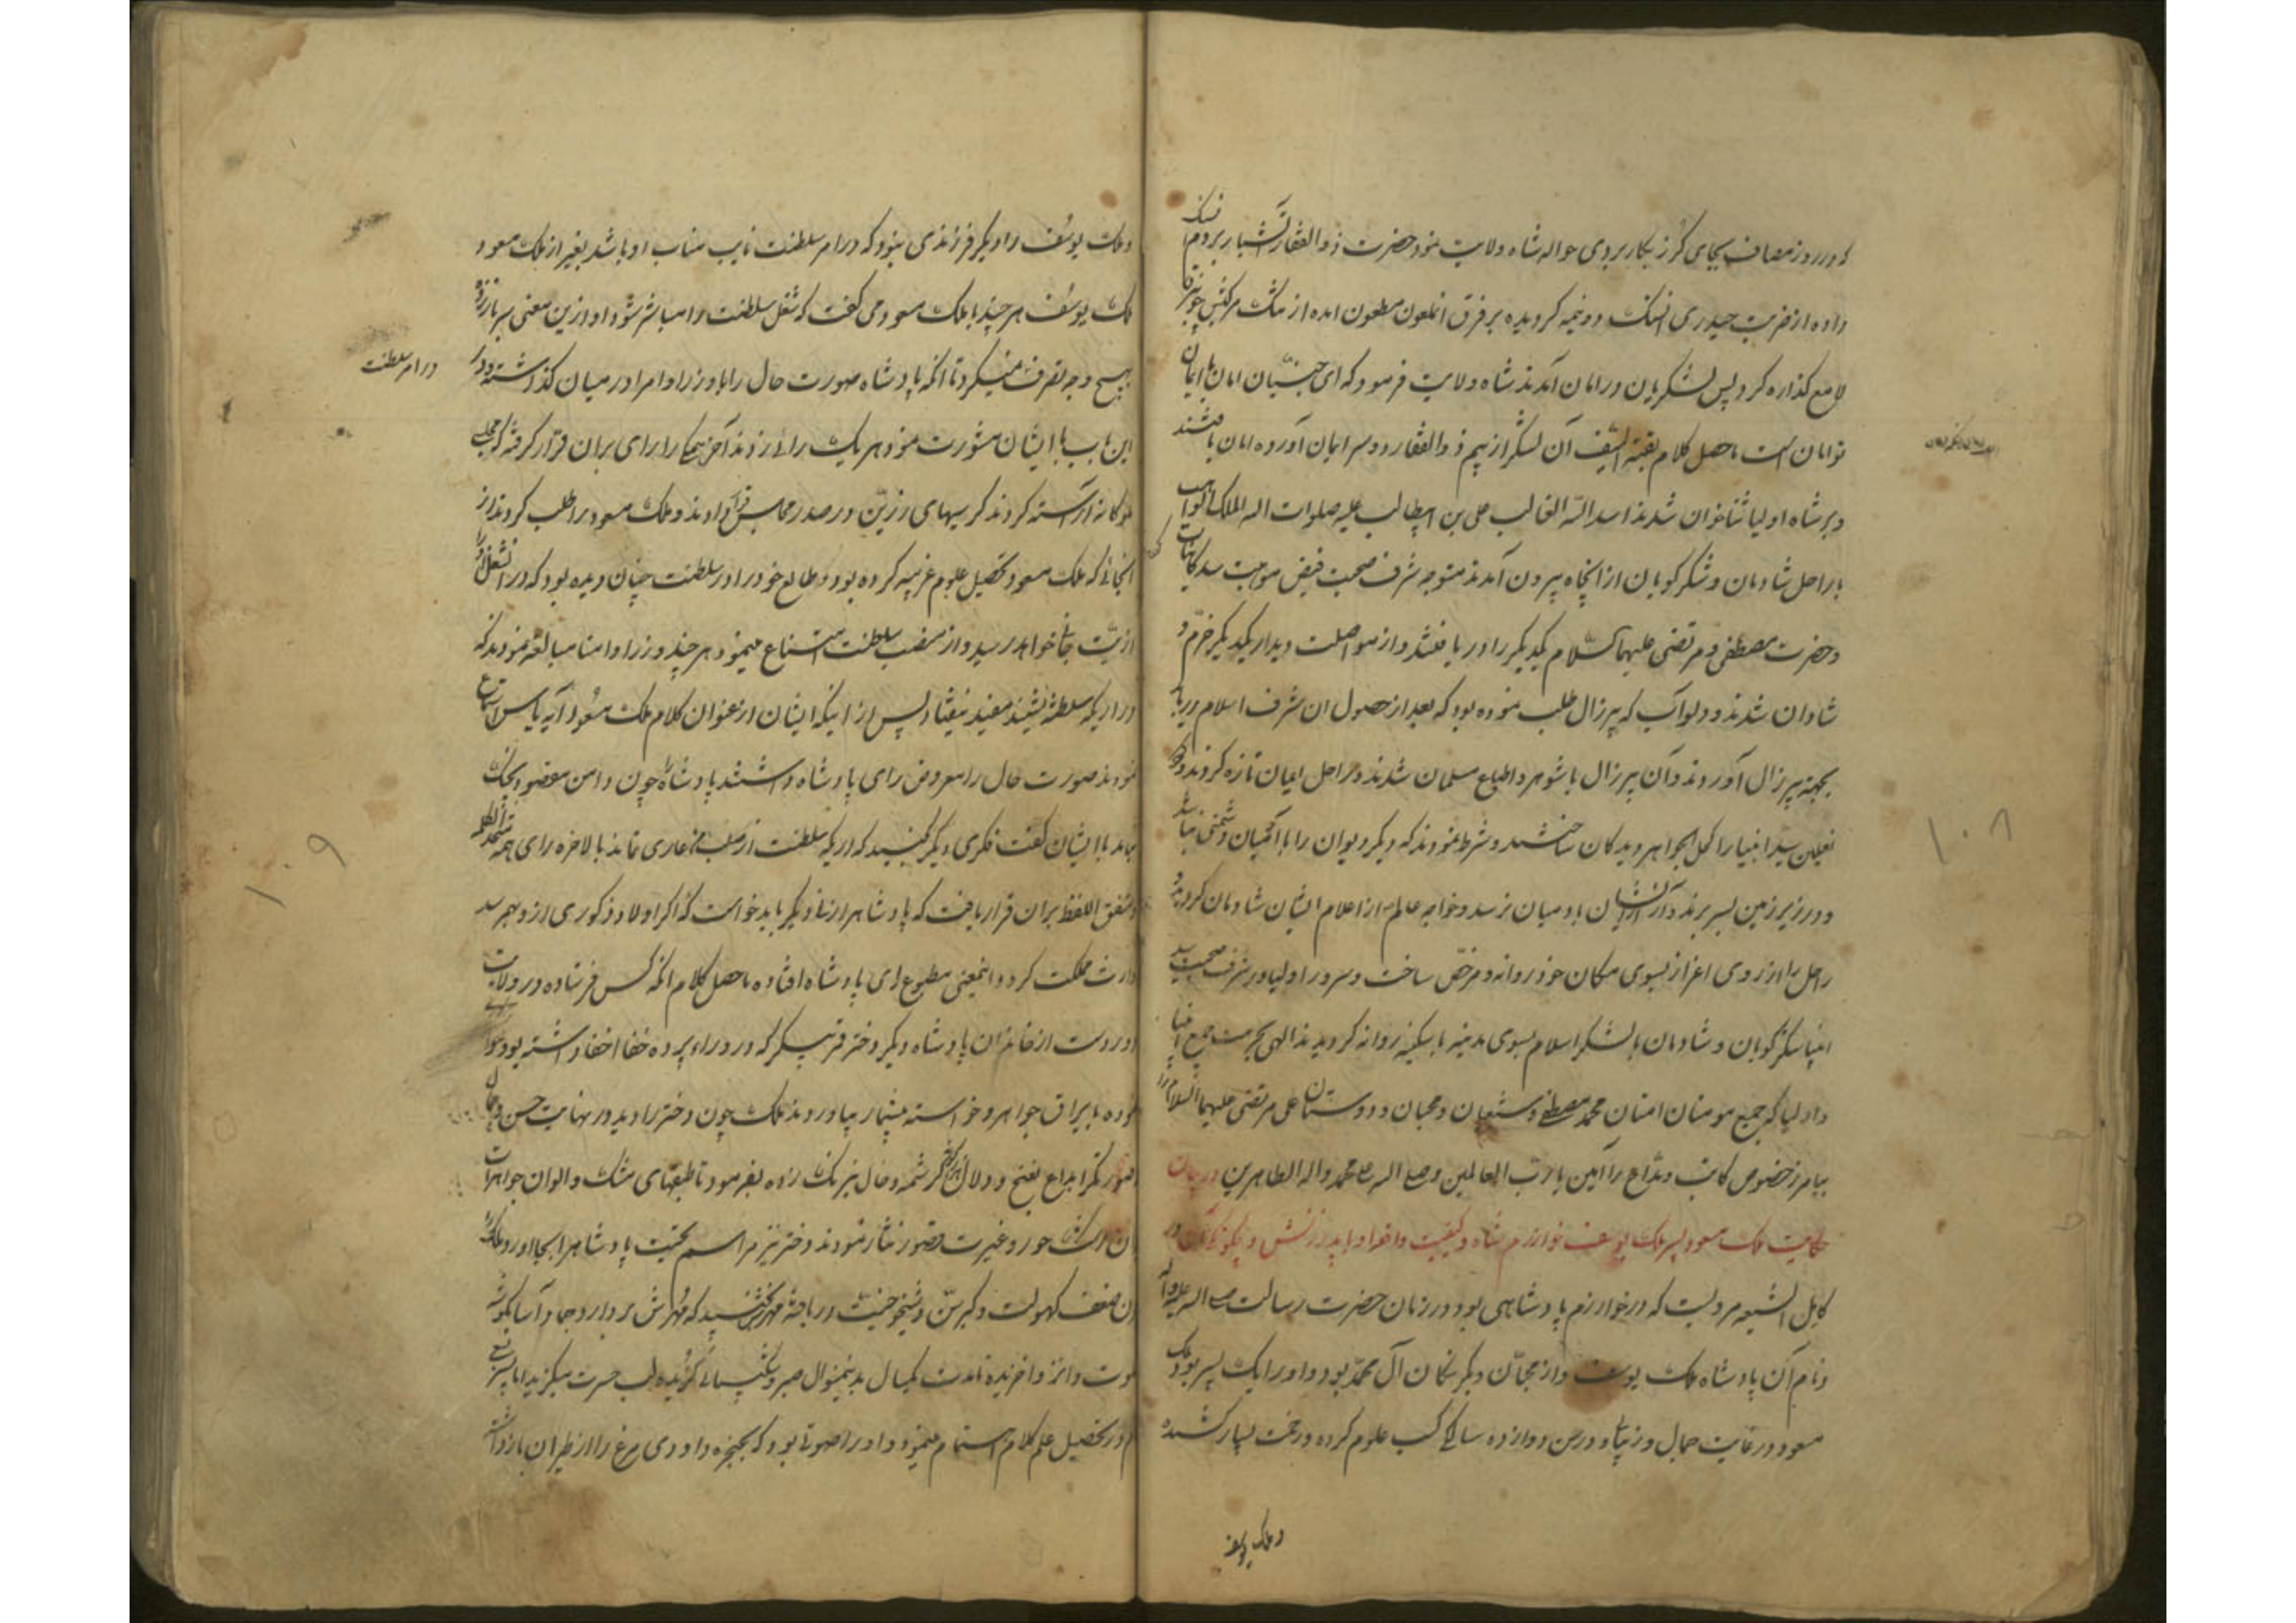 که در روز مصاف بجای گرز بکار بردی حواله شاه ولایت نمود حضرت ذوالفقار آتشبار بر دم نهنک
داده از ضرب حیدری دو نیمه کردیده بر فرق انملعون مطعون امده از مرکبش چون برق
لامع کذاره کرد پس لشکریان در امان آمدند شاه ولایت فرمود که ای جنیّان امان با ایمان
توامان است ماحصل کلام بقیة السیف آن لشکر از بیم ذوالفقار دو سر ایمان آورده امان یافتند
و بر شاه اولیا ثناخوان شدند اسد الله الغالب علی بن ابیطالب علیه صلوات الله الملک الواهب
با راحل شادمان و شکر کویان از انچاه بیرون آمدند متوجه شرف صحبت فیض موهبت سید کاینات
و حضرت مصطفی و مرتضی علیهما السّلام یکدیکر را دریافتند و از مواصلت و دیدار یکدیکر خرّم و
شادان شدند و دلو آب که پیرزال طلب نموده بود که بعد از حصول ان شرف اسلام دریابد
بجهة پیرزال آوردند و آن پیرزال با شوهر و اتباع مسلمان شدند و راحل ایمان تازه کردند و
نعلین سیّد انبیا را کحل الجواهر دیدکان ساختند و شرط نمودند که دیکر دیوان را با آدمیان دشمنی نباشد
و در زیر زمین بسر برند و آزار ایشان بادمیان نرسد و خواجه عالم از اعلام ایشان شادمان کردید و
راحل را از روی اعزاز بسوی مکان خود روانه و مرخّص ساخت و سرور اولیا در شرف صحبت سید
انبیا شکر کویان و شادمان با لشکر اسلام بسوی مدینه با سکینه روانه کردیدند الهی بحرمت جمیع انبیا
و اولیا که جمیع مومنان امتان محمد مصطفی و شیعیان و محبان و دوستان علی مرتضی علیهما السلام را
بیامرز خصوص کاتب و مدّاح را آمین یا ربّ العالمین و صلی الله علی محمد و اله الطاهرین در بیان
حکایت ملک مسعود پسر ملک یوسف خوارزم شاه و کیفیت و افرا و با پدر زنش و چکونکی آن در
کامل الشیعه مرویست که در خوارزم پادشاهی بود در زمان حضرت رسالت صلی الله علیه و آله
و نام آن پادشاه ملک یوسف و از محبّان و یکرنکان آل محمّد بود و او را یک پسر بود ملک
مسعود در غایت جمال و زیبائی و در سن دوازده سالکی کسب علوم کرده و زحمت بسیار کشیده
و ملک یوسف
و ملک یوسف را دیکر فرزندی نبود که در امر سلطنت نایب مناب او باشد بغیر از ملک مسعود
ملک یوسف هر چند با ملک مسعود می کفت که شغل سلطنت را مباشر شو و او ازین معنی سر باز زده
بهیچ وجه تصرف نمیکرد تا انکه پادشاه صورت حال را با وزرا و امرا در میان کذاشته و در
در امر سلطنت
این باب با ایشان مشورت نمود هر یک رائی زدند آخر همکی را رای بران قرار کرفته که مجلسی
ملوکانه آراسته کردند کرسیهای زرّین در صدر مجالس قرار دادند و ملک مسعود را طلب کردند از
انجائی که ملک مسعود تحصیل علوم غریبه کرده بود و طالع خود را در سلطنت چنان دیده بود که در
اذیّت جانی خواهد رسید و از منصب سلطنت امتناع مینمود هر چند وزرا و امنا مبالغه نمودند که
در اریکه سلطنت نشیند مفید نیفتاد پس از اینکه ایشان از عنوان کلام ملک مسعود آیه یاس استماع
نمودند صورت حال را معروض رای پادشاه داشتند پادشاه چون دامن مقصود بچنک
نیامد با ایشان کفت فکری دیکر کنید که اریکه سلطنت از صلب من عاری نماند بالاخره رای همه
و متفق اللفظ بران قرار یافت که پادشاه را زنی دیکر باید خواست که اکر اولاد ذکوری ازو بهم رسد
وارث مملکت کردد اینمعنی مطبوع رای پادشاه افتاده ماحصل کلام انکه کس فرستاده در ولایت
دور دست از خاندان پادشاه دیکر دختر قمر پیکر که در وراء پرده خفا اختفا داشته بود
نموده با یراق جواهر و خواسته بیشمار بیاوردند ملک چون دختر را دید در نهایت حسن و جمال
کرشمه و خال نیرنک زاده بفرمود تا طبقهای مشک و الوان جواهرات
ان رشک حور و غیرت قصور نثار نمودند دختر نیز مراسم تحیّت پادشاه را بجا آورد و ملک را
ان ضعف کهولت و کبر سنّ و شیخوخیّت دریافته
مدت یکسال بدینمنوال صبر و شکیبائی کزیده لب حسرت میکزید اما پسر
در تحصیل علم کلام اهتمام مینمود و او را صوتی بود که بحنجره داودی مرغ را از طیران باز داشتی
۱۰۸
۱۰۹